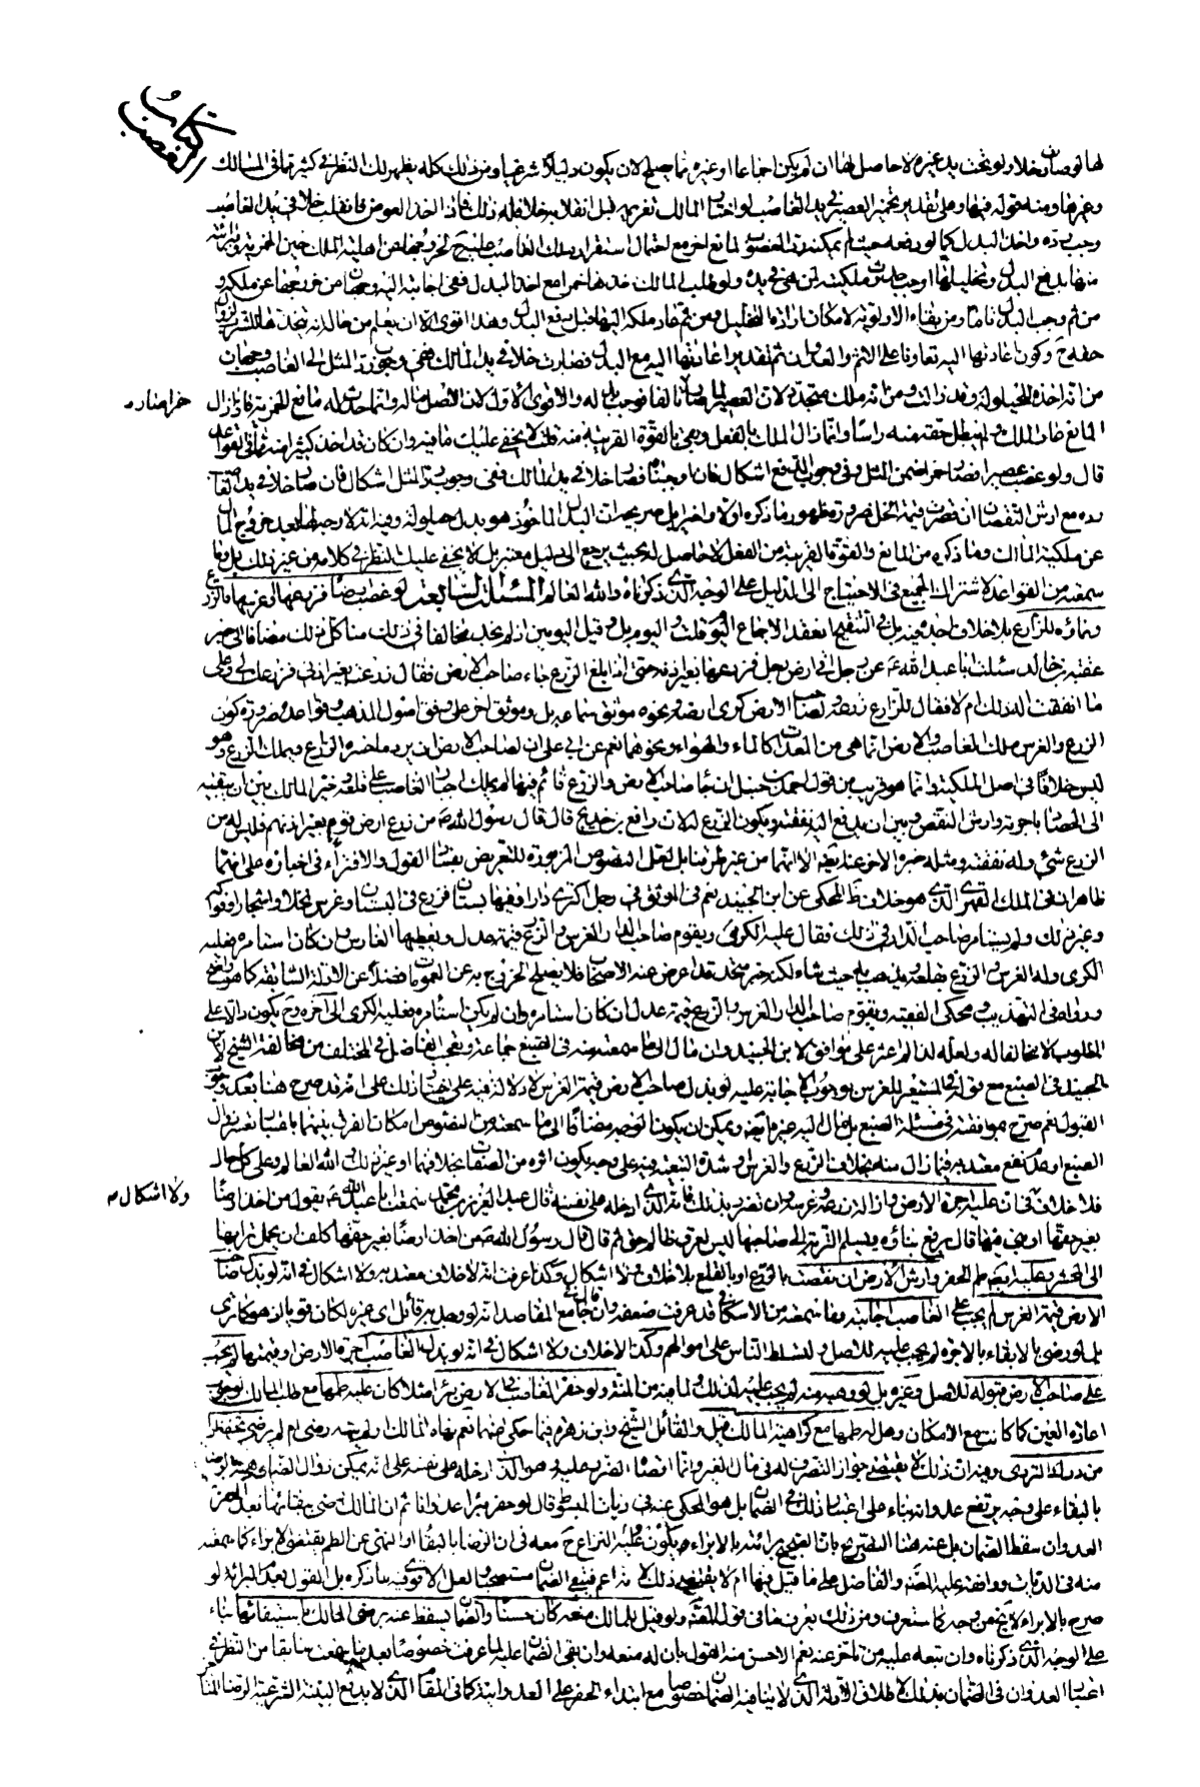 كتاب
الغصب
لها لو صارت خلا ولو تحت يد غيره لا حاصل لها ان لم يكن اجماعا او غيره مما يصلح لان يكون دليلا شرعيا ومن ذلك كله يظهر لك النظر في كثير مما في المسالك
وغيرها ومنه قوله فيها وعلى تقدير تخمير العصير في يد الغاصب لو اختار المالك تغريمه قبل انقلابه خلا فله ذلك فاذا اخذ العوض فانقلب خلا في يد الغاصب
وجب رده واخذ البدل كما لو رفعه حيث لم يمكنه رد المغصوب لمانع اخر مع احتمال استقرار ملك الغاصب عليه ح لخروجها عن اهلية الملك حين الخمرية وبرائته
منها بدفع البدل وتخليلها اوجب حدوث ملكيته لمن هي في يده ولو طلب المالك اخذها خمرا مع اخذ البدل ففي اجابته اليه وجهان من خروجها عن ملكه و
من ثم وجب البدل تاما ومن بقاء الاولوية لامكان ارادة التخليل ومن ثم عاد ملكه اليها قبل دفع البدل وهذا اقوى الا ان يعلم من حاله انه يتخذها للشرب فيزول
حقه ح وكون اعادتها اليه تعاونا على الاثم والعدوان ثم بتقدير اعادتها اليه مع البدل فصارت خلا في يد المالك ففي وجوب رد المثل الى الغاصب وجهان
من انه اخذه للحيلولة وقد زالت ومن انه ملك متجدد لان العصير لما صار تالفا فوجب بدله والاقوى الاول لان الاصل ماله وانما حدث له مانع الخمرية فاذا زال
خمرا صار
المانع عاد الملك ولم يبطل حقه منه راسا وانما زال الملك بالفعل وبقي بالقوة القريبة منه قلت لا يخفى عليك ما فيه وان كان قد اخذ كثيرا منه مما في القواعد
قال ولو غصب عصيرا فصار خمرا ضمن المثل وفي وجوب الدفع اشكال فان اوجبناه فصار خلا في يد المالك ففي وجوب رد المثل اشكال فان صار خلا في يد الغاصب
رده مع ارش النقصان ان قصرت قيمة الخل ضرورة ظهور ما ذكره اولا واخرا بل صريحه ان البدل الماخوذ هو بدل حيلولة وفيه انه لا وجه لها بعد خروج المال
عن ملكية المالك وما ذكره من المانع والقوة القريبة من الفعل لا حاصل له بحيث يرجع الى دليل معتبر بل لا يخفى عليك النظر في كلامه من غير ذلك بل وما
سمعته من القواعد لاشتراك الجميع في الاحتياج الى الدليل على الوجه الذي ذكرناه والله العالم المسئلة السابعة لو غصب ارضا فزرعها او غرسها فالزرع
ونماؤه للزارع بلا خلاف اجده فيه بل في التنقيح انعقد الاجماع اليوم قلت واليوم بل وقبل اليومين اذ لم نجد مخالفا في ذلك منا كل ذلك مضافا الى خبر
عقبة بن خالد سئلت ابا عبد الله ع عن رجل اتى ارض رجل فزرعها بغير اذنه حتى اذا بلغ الزرع جاء صاحب الارض فقال زرعت بغير اذني فزرعك لي وعلي
ما انفقت اله ذلك ام لا فقال للزارع زرعه ولصاحب الارض كرى ارضه ونحوه موثق سماعة بل وموثق اخر على وفق اصول المذهب وقواعده ضرورة كون
الزرع والغرس ملك الغاصب والارض انما هي من المعدات كالماء والهواء ونحوهما نعم عن ابي علي ان لصاحب الارض ان يرد ما خسره الزارع ويملك الزرع وهو
ليس خلافا في اصل الملكية وانما هو قريب من قول احمد بن حنبل ان جاء صاحب الارض والزرع قائم فيها لم يملك اجبار الغاصب على قلعه وخير المالك بين ان يبقيه
الى الحصاد باجرته وارش النقص وبين ان يدفع اليه نفقته ويكون الزرع له لان رافع بن خديج قال قال رسول الله ص من زرع ارض قوم بغير اذنهم فليس له من
الزرع شئ وله نفقته ومثله خبره الاخر عنه ايضا الا انهما من غير طرقنا بل لعل النصوص المزبورة للتعريض بفساد القول والافتراء في اخباره على انهما
ظاهران في الملك القهري الذي هو خلاف المحكي عن ابن الجنيد نعم في الموثق في رجل اكترى دارا وفيها بستان فزرع في البستان وغرس نخلا واشجارا وفواكه
وغير ذلك ولم يستامر صاحب الدار في ذلك فقال عليه الكرى ويقوم صاحب الدار الغرس والزرع قيمة عدل ويعطيها الغارس وان كان استامره فعليه
الكرى وله الغرس والزرع يقلعه ويذهب به حيث شاء لكنه خبر متحد قد اعرض عنه الاصحاب فلا يصلح الخروج به عن العمومات فضلا عن الادلة السابقة كما هو واضح
ورواه في التهذيب ومحكي الفقيه ويقوم صاحب الدار الغرس والزرع قيمة عدل ان كان استامره وان لم يكن استأمره فعليه الكرى الى اخره وح يكون دالا على
المطلوب لا مخالفا له ولعله لذا لم اعثر على موافق لابن الجنيد وان مال الى ما سمعته منه في الصبغ جماعة وتعجب الفاضل في المختلف من مخالفة الشيخ لابن
الجنيد في الصبغ مع قوله في المستعير للغرس بوجوب الاجابة عليه لو بذل صاحب الارض قيمة الغرس لا دلالة فيه على اختياره ذلك على انه قد صرح هنا بعدم وجوب
القبول نعم صرح بموافقته في مسئلة الصبغ بل مال اليه غيره ايضا ويمكن ان يكون الوجه مضافا الى ما سمعته من النصوص امكان الفرق بينهما باعتبار تعسر زوال
الصبغ او عدم نفع معتد به فيما زال منه بخلاف الزرع والغرس او شدة التبعية فيه على وجه يكون اثره من الصفات بخلافهما او غير ذلك والله العالم وعلى كل حال
فلا خلاف في ان عليه اجرة الارض وازالة زرعه وغرسه وان تضرر بذلك فانه الذي ادخله على نفسه قال عبد العزيز بن محمد سمعت ابا عبد الله ع يقول من اخذ ارضا
ولا اشكال م
بغير حقها او بنى فيها قال يرفع بناؤه ويسلم التربة الى صاحبها ليس لعرق ظالم حق ثم قال قال رسول الله ص من اخذ ارضا بغير حقها كلف ان يحمل ترابها
الى المحشر وعليه ايضا طم الحفر وارش الارض ان نقصت بالزرع او بالقلع بلا خلاف ولا اشكال وكذا عرفت انه لا خلاف معتد به ولا اشكال في انه لو بذل صاحب
الارض قيمة الغرس لم يجب على الغاصب اجابته وما سمعته من الاسكافي قد عرفت ضعفه وان قال في جامع المقاصد انه لو وجد به قائل اي غيره لكان قويا اذ هو كما ترى
بل لو رضي بالابقاء بالاجرة لم يجب عليه للاصل ولتسلط الناس على اموالهم وكذا لا خلاف ولا اشكال في انه لو بذل الغاصب اجرة الارض او قيمتها لم يجب
على صاحب الارض قبوله للاصل وغيره بل لو وهبه منه لم يجب عليه لذلك ولما فيه من المنة ولو حفر الغاصب في الارض بئرا مثلا كان عليه طمها مع طلب المالك لوجوب
اعادة العين كما كانت مع الامكان وهل له طمها مع كراهية المالك قيل والقائل الشيخ وابن زهرة فيما حكي عنهما نعم نهاه المالك او لم ينهه رضي ام لم يرض تحفظا
من درك التردي وفيه ان ذلك لا يقتضي جواز التصرف له في مال الغير وانما اقصاه الضرر عليه وهو الذي ادخله على نفسه على انه يمكن زوال الضمان عنه بالرضا
بالبقاء على وجه يرتفع عدوانه بناء على اعتبار ذلك في الضمان بل هو المحكي عنه في ديات المبسوط قال لو حفر بئرا عدوانا ثم ان المالك رضي ببقائها بعد الحفر
العدوان سقط الضمان بل عنه هنا التصريح بان الصحيح برائته بالابراء ويكون وعليه النزاع ح معه في ان الرضا بالبقاء او المنع عن الطم يقتضي الابراء كما سمعته
منه في الديات ووافقه عليه المصنف والفاضل على ما قيل فيها ام لا يقتضي ذلك لانه اعم فيبقى الضمان مستصحبا ولعل الاقوى فيه ما ذكره بل القول بعدم البرائة لو
صرح بالابراء لا يخ من وجه كما ستعرف ومن ذلك يعرف ما في قول المصنف ولو قيل للمالك منعه كان حسنا والضمان يسقط عنه برضى المالك باستيقائها بناء
على الوجه الذي ذكرناه وان تبعه عليه من تاخر عنه نعم الاحسن منه القول بان له منعه وان بقي الضمان عليه لما عرفت خصوصا بعد ما سمعت سابقا من النظر في
اعتبار العدوان في الضمان بذلك لاطلاق الادلة الذي لا ينافيه الضمان خصوصا مع ابتداء الحفر على العدوانية كما في المقام الذي لا يدفع اليه الشرعية الرضا المتاخر